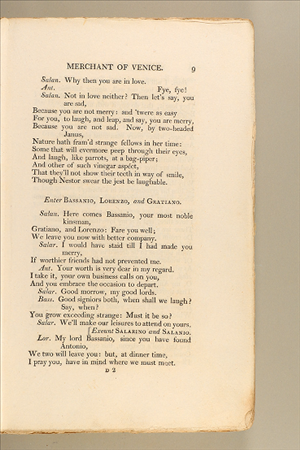 MERCHANT OF VENICE. 9
Salan. Why then you are in love.
Ant. Fye, fye!
Salan. Not in love neither? Then let's say, you
are sad,
Because you are not merry: and 'twere as easy
For you, to laugh, and leap, and say, you are merry,
Because you are not sad. Now, by two-headed
Janus,
Nature hath fram'd strange fellows in her time:
Some that will evermore peep through their eyes,
And laugh, like parrots, at a bag-piper;
And other of such vinegar aspéct,
That they'll not show their teeth in way of smile,
Though Nestor swear the jest be laughable.
Enter BASSANIO, LORENZO, and GRATIANO.
Salan. Here comes Bassanio, your most noble
kinsman,
Gratiano, and Lorenzo: Fare you well;
We leave you now with better company.
Salar. I would have staid till I had made you
merry,
If worthier friends had not prevented me.
Ant. Your worth is very dear in my regard.
I take it, your own business calls on you,
And you embrace the occasion to depart.
Salar. Good morrow, my good lords.
Bass. Good signiors both, when shall we laugh?
Say, when?
You grow exceeding strange: Must it be so?
Salar. We'll make our leisures to attend on yours.
[Exeunt SALARINO and SALANIO.
Lor. My lord Bassanio, since you have found
Antonio,
We two will leave you: but, at dinner time,
I pray you, have in mind where we must meet.
D 2